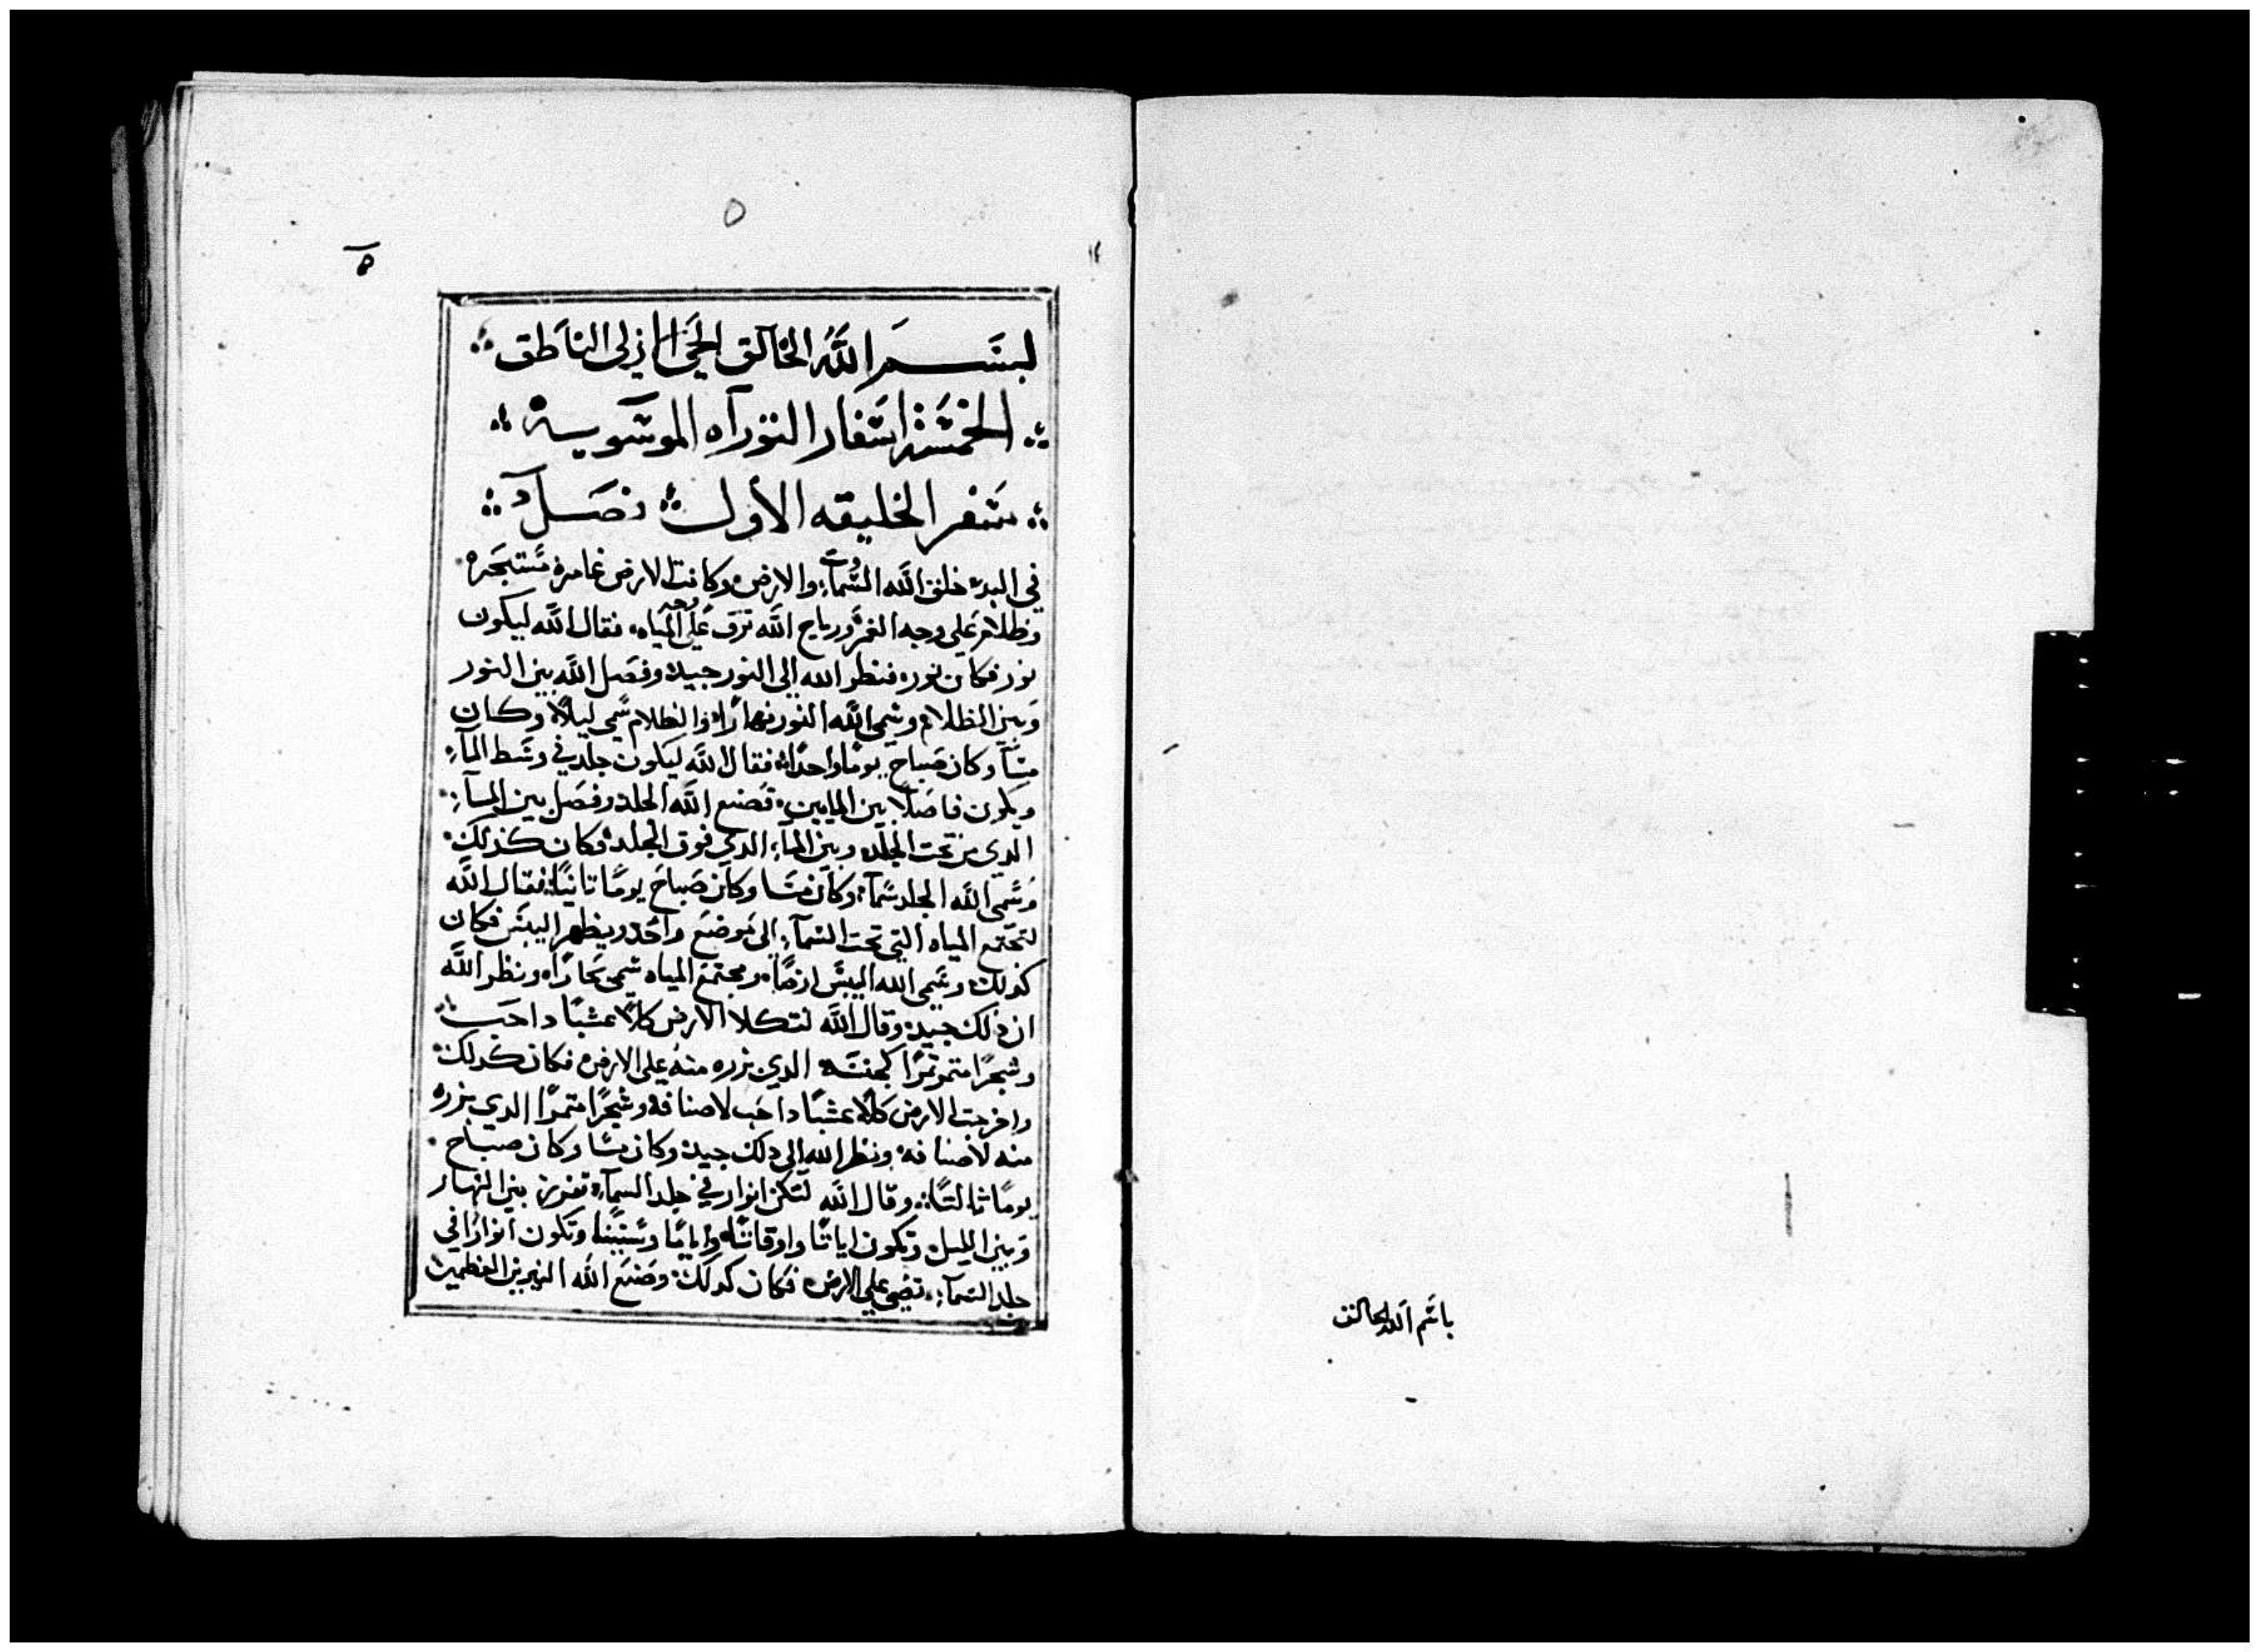 باسم الله الخالق
٥
٥
لبسم الله الخالق الحي الازلي الناطق
الخمسة اسفار التوراه الموسويه
سفر الخليقه الأول فصل
في البدء خلق الله السماوات والارض وكانت الارض غامرة مستبحره
وظلام على وجه الغمر ورياح الله ترف على وجه المياه فقال الله ليكون
نور فكان نور فنظر الله الى النور جيد وفصل الله بين النور
وبين الظلام وسمى الله النور نهارًا والظلام سمى ليلاً وكان
مسآ وكان صباح يومًا واحدًا فقال الله ليكون جلد في وسط المآء
ويكون فاصلاً بين المايين فصنع الله الجلد وفصل بين المآء
الدي من تحت الجلد وبين المآء الدي فوق الجلد فكان كذلك
وسمى الله الجلد سمآء وكان مسا وكان صباح يومًا تانيًا فقال الله
لتجتمع المياه التي تحت السمآء الى موضع واحد ويظهر اليبس فكان
كذلك وسمى الله اليبس ارضًا ومجتمع المياه سمى بحارًا ونظر الله
ان ذلك جيد وقال الله لتكلا الارض كلاً عشبًا داحب
وشجرًا متمر تمرًا لجنسه الدي بزره منه على الارض فكان كدلك
واخرجت الارض كلاً عشبًا داحب لاصنافه وشجرًا متمرًا الدي بزره
منه لاصنافه ونظر الله الى دلك جيد وكان مسا وكان صباح
يومًا ثالتًا وقال الله لتكن انوار في جلد السمآء تفرز بين النهار
وبين الليل وتكون اياتًا واوقاتًا وايامًا وسنينًا وتكون انوارًا في
جلد السمآء تضي على الارض فكان كدلك وصنع الله النيرين العظمين